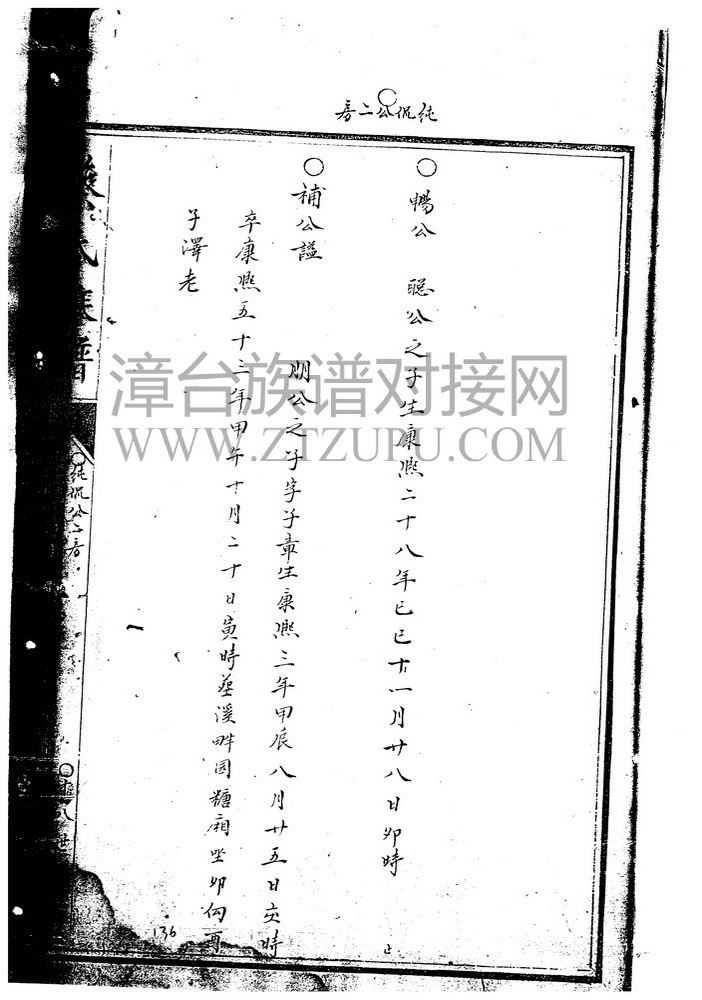 純侃公二房
○暢公 聰公之子生康熙二十八年己巳十一月廿八日卯時
止
○補公謚 朋公之子字子章生康熙三年甲辰八月廿五日亥時
卒康熙五十三年甲午十月二十日寅時葬溪畔園糖廍坐卯向酉
子澤老
氏族譜
○純侃公二房
八世
136
漳台族谱对接网
WWW.ZTZUPU.COM